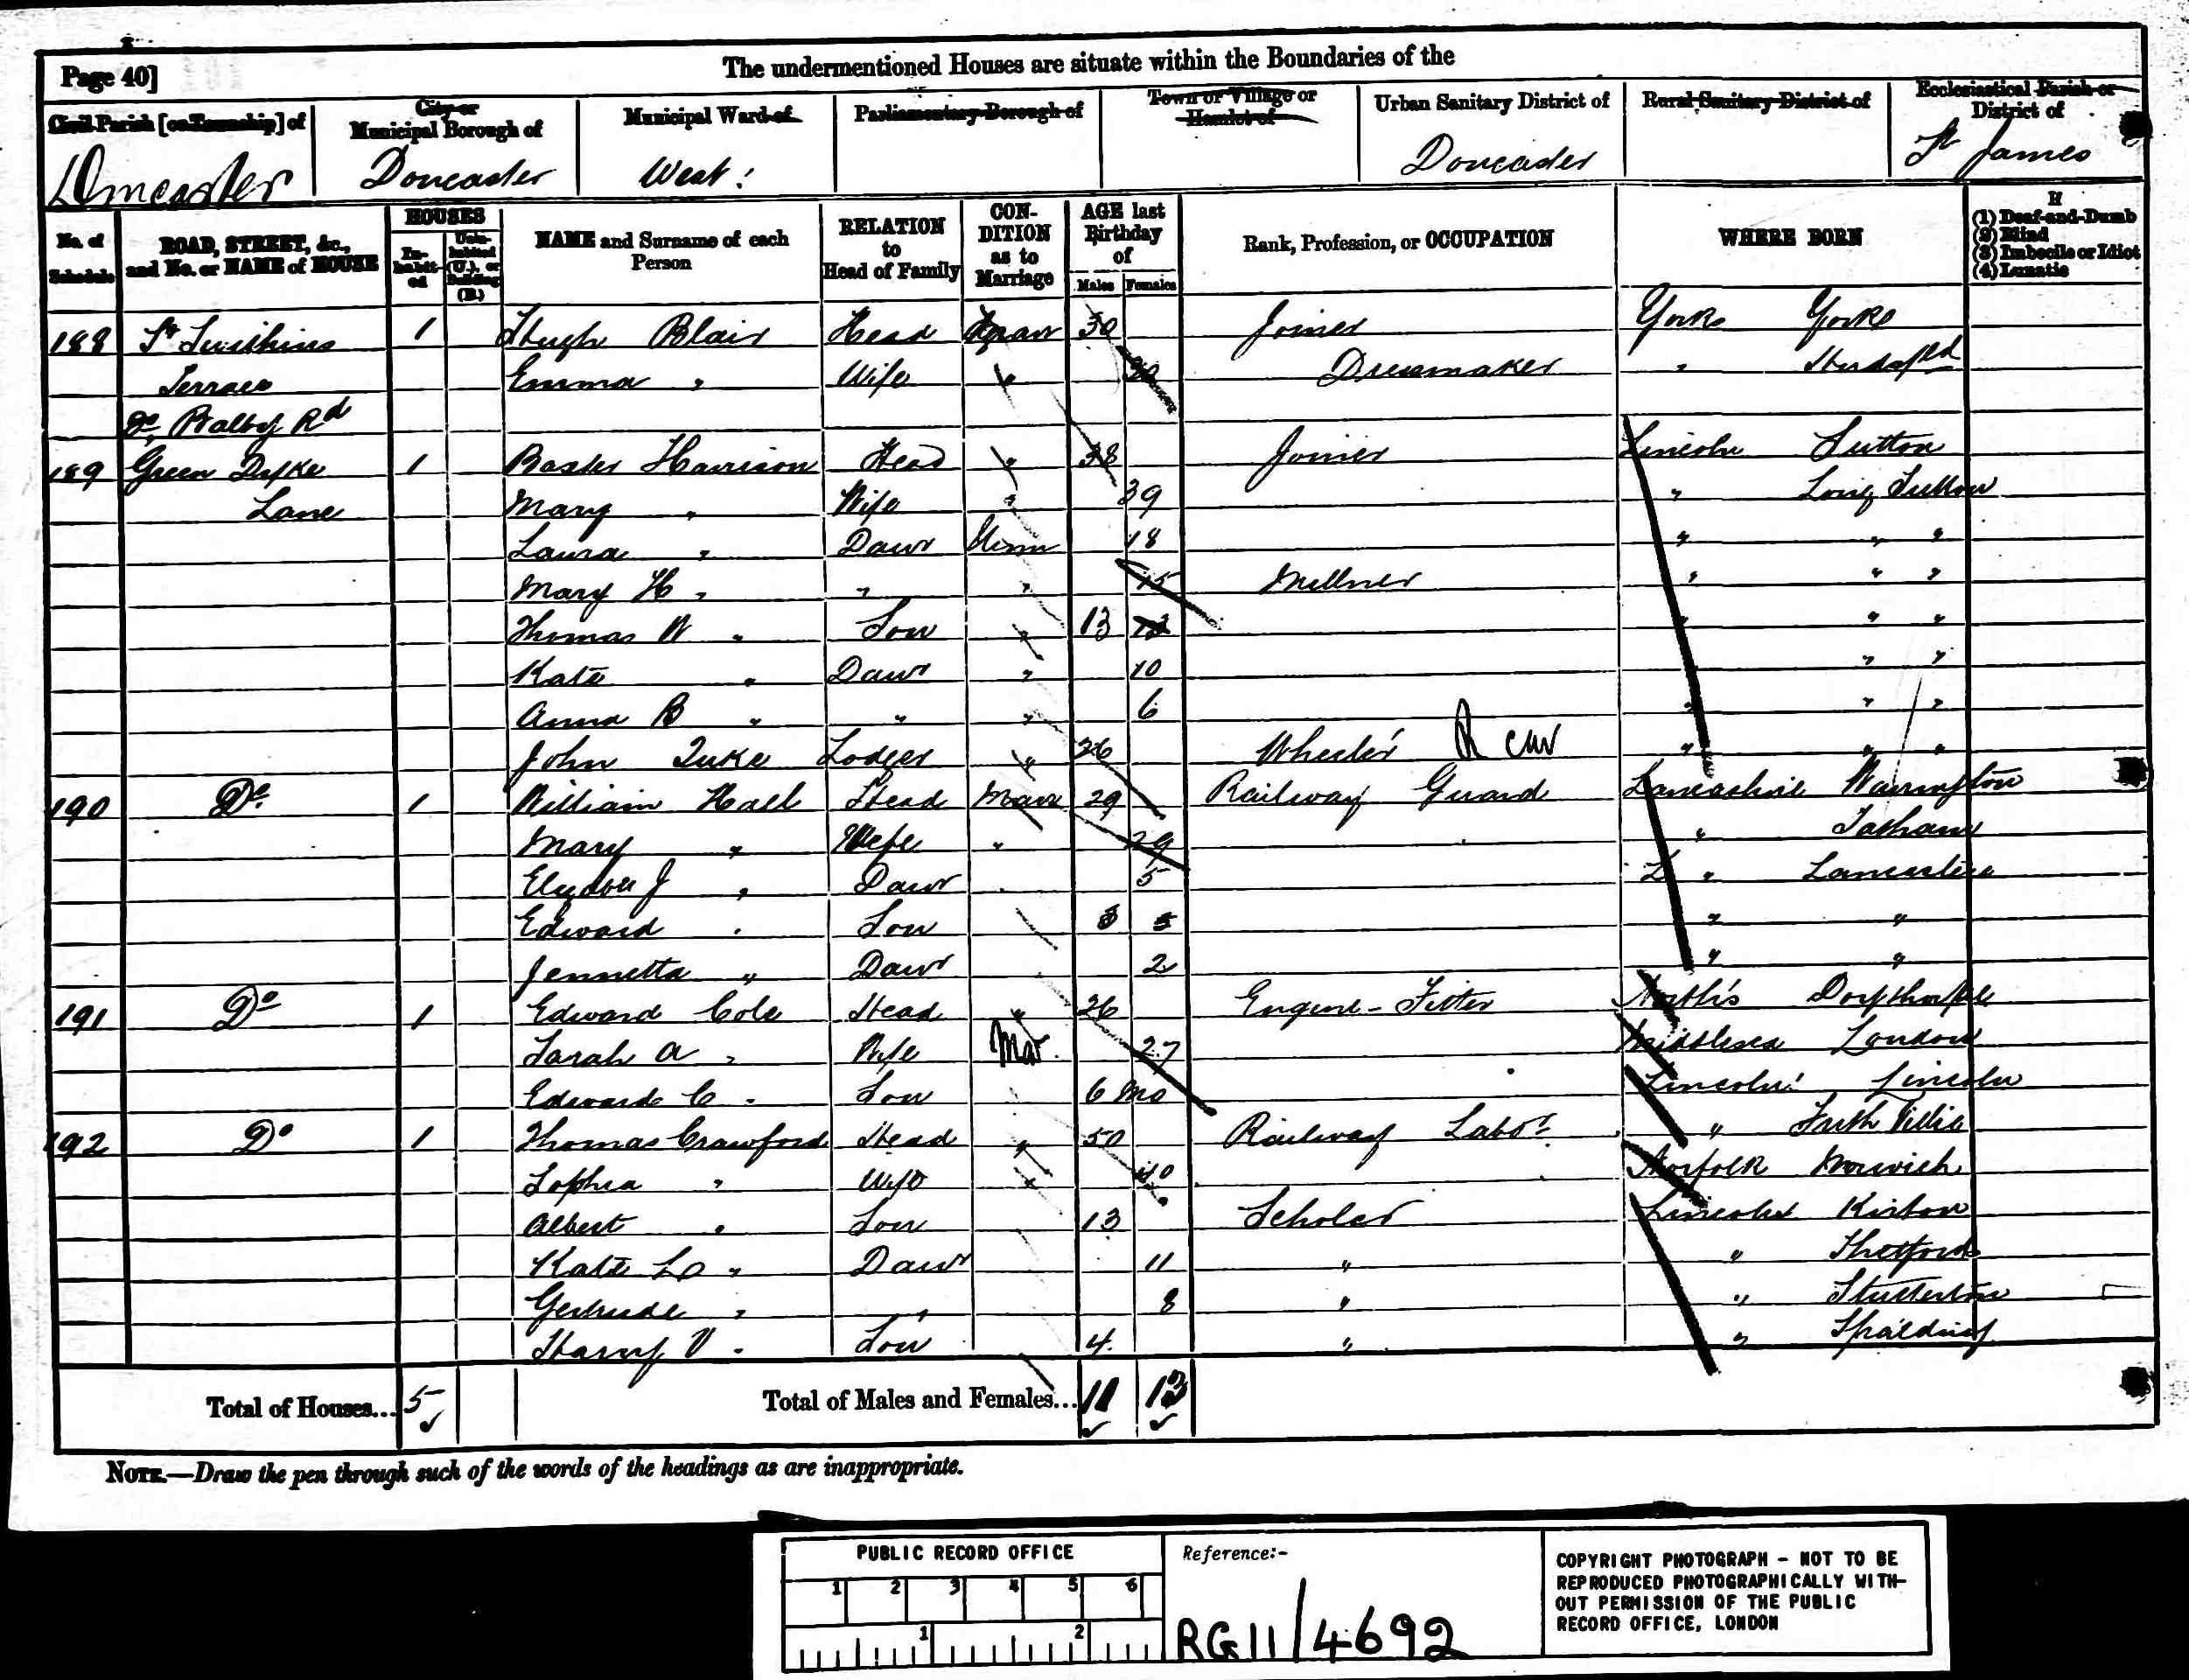 Page 40]
The undermentioned Houses are situate within the Boundaries of the
Civil Parish [or Township] of
City or Municipal Borough of
Municipal Ward of
Parliamentary Borough of
Town or Village or Hamlet of
Urban Sanitary District of
Rural Sanitary District of
Ecclesiastical Parish or District of
Doncaster Doncaster West Doncaster St James
No. of Schedule
ROAD, STREET, &c., and No. or NAME of HOUSE
HOUSES
In-habit-ed
Unin-habited (U.), or Building (B.)
NAME and Surname of each Person
RELATION to Head of Family
CON-DITION as to Marriage
AGE last Birthday of
Males Females
Rank, Profession, or OCCUPATION
WHERE BORN
If
(1) Deaf-and-Dumb
(2) Blind
(3) Imbecile or Idiot
(4) Lunatic
188 St Swithins 1 Hugh Blair Head Marr 30 Joiner Yorks York
Terrace Emma " Wife " Dressmaker " Huddsfld
Do, Balby Rd
189 Green Dyke 1 Baxter Harrison Head " 38 Joiner Lincoln Sutton
Lane Mary " Wife " 39 " Long Sutton
Laura " Daur Unm 18 " " "
Mary H " " " 15 Millner " " "
Thomas W " Son " 13 " " "
Kate " Daur " 10 " " "
Anna B " " " 6 " " "
John Luke Lodger " 26 Wheeler " " "
190 Do 1 William Hall Head Marr 29 Railway Guard Lancashire Warrington
Mary " Wife " 29 " Tatham
J " Daur 5 " Lancaster
Edward " Son 3 " "
Jennetta " Daur 2 " "
191 Do 1 Edward Cole Head " 26 Engine-Fitter
Sarah A " Wife Mar 27 Middlesex London
Edward C " Son 6 Mo Lincoln Lincoln
192 Do 1 Thomas Crawford Head " 50 Railway Labor " Frith Ville
Sophia " Wife " 40 Norfolk Norwich
Albert " Son 13 Scholar Lincoln Kirton
Kate L " Daur 11 " " Thetford
Gertrude " " 8 " "
Harry V " Son 4 " " Spalding
Total of Houses... 5
Total of Males and Females... 11 13
NOTE.—Draw the pen through such of the words of the headings as are inappropriate.
PUBLIC RECORD OFFICE
1 2 3 4 5 6
1 2
Reference:-
RG11/4692
COPYRIGHT PHOTOGRAPH - NOT TO BE
REPRODUCED PHOTOGRAPHICALLY WITH-
OUT PERMISSION OF THE PUBLIC
RECORD OFFICE, LONDON